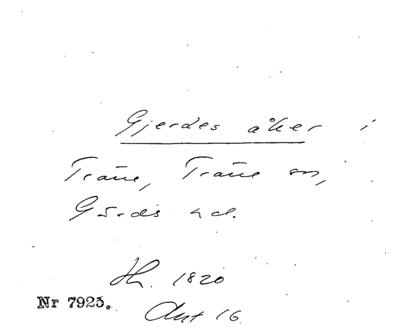 Gjerdes åker i
Träne, Träne sn,
Gärds hd.
Hh. 1820
Nr 7925.
Akt 16